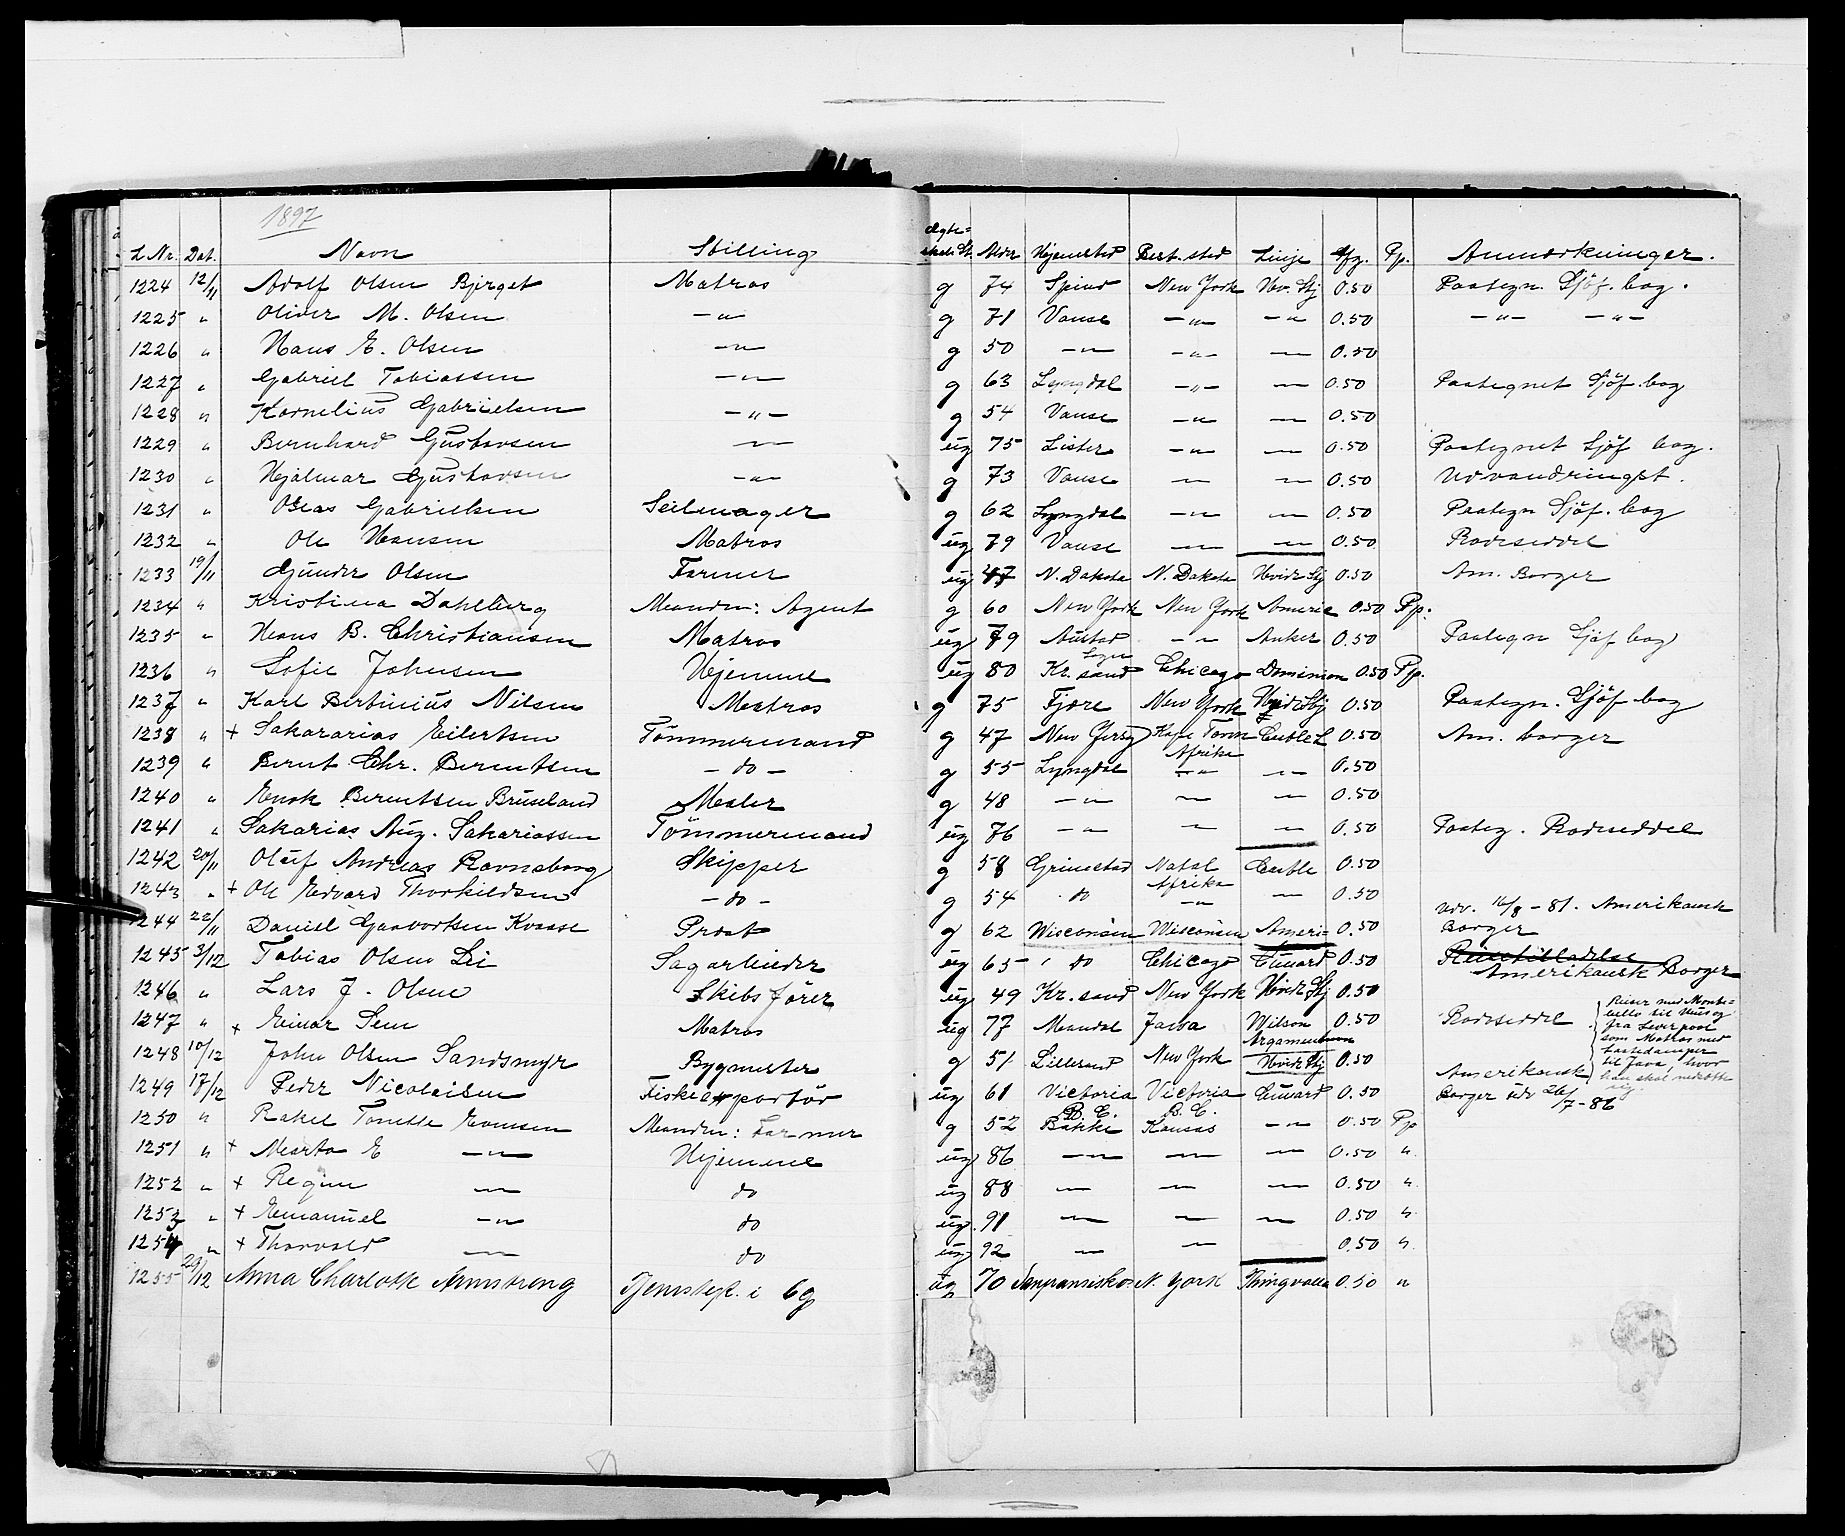 1897
L Nr. Dat. Navn Stilling Ægte-skab St. Alder Hjemsted Best. sted Linje Afg. Pp. Anmærkninger.
1224 12/11 Adolf Olsen Bjerget Matros g 74 Spind New York Hv. Stj 0.50 Paategn. Sjöf. bog.
1225 " Oliver M. Olsen —"— g 71 Vanse —"— —"— 0.50 —"— —"—
1226 " Hans E. Olsen —"— g 50 —"— —"— — 0.50
1227 " Gabriel Tobiassen —"— g 63 Lyngdal —"— — 0.50 Paategnet Sjöf. bog
1228 " Kornelius Gabrielsen —"— g 54 Vanse —"— — 0.50
1229 " Bernhard Gustavsen — ug 75 Lister —"— — 0.50 Paategnet Sjöf bog.
1230 " Hjalmar Gustavsen —"— g 73 Vanse — — 0.50 Udvandringst.
1231 " Osias Gabrielsen Seilmager g 62 Lyngdal —"— — 0.50 Paategn Sjöf. bog
1232 " Ole Hansen Matros ug 79 Vanse — — 0.50 Rodeseddel
1233 19/11 Gunder Olsen Farmer ug 47 N. Dakota N. Dakota Hvide Stj 0.50 Am. Borger
1234 " Kristina Dahlberg Manden: Agent g 60 New York New York Americ 0.50 Pp.
1235 " Hans B. Christiansen Matros ug 79 Austad —"— Anker 0.50 Paategn Sjöf bog
1236 " Sofie Johnsen Hjemme ug 80 Kr. sand Chicago Dominion 0.50 Pp.
1237 " Karl Bertinius Nilsen Matros g 75 Fjære New York Hvide Stj 0.50 Paategn. Sjöf bog
1238 " + Sakararias Eilertsen Tömmermand g 47 New Jersey Kape Town Afrika Castle L 0.50 Am. borger
1239 " Bernt Chr. Berentsen —do— g 55 Lyngdal —"— — 0.50
1240 " Enok Berentsen Bruseland Maler g 48 —"— — — 0.50
1241 " Sakarias Aug. Sakariassen Tömmermand ug 76 —"— — — 0.50 Paateg. Rodeseddel
1242 20/11 Oluf Andreas Ravneborg Skipper g 58 Grimstad Natal Afrika Castle 0.50
1243 " + Ole Edvard Thorkildsen —do— g 54 do —"— — 0.50
1244 22/11 Daniel Gaabortsen Kvasse Prost g 62 Wisconsin Wisconsin Ameri= 0.50 Udv. 16/8-81. Amerikansk Borger
1245 3/12 Tobias Olsen Lie Sagarbeider ug 65 " do Chicago Cunard 0.50 Reisetilladelse Amerikansk Borger
1246 " Lars J. Olsen Skibsfører ug 49 Kr. sand New York Hvide Stj 0.50
1247 " + Einar Sem Matros ug 77 Mandal Java Wilson 0.50 Rodeseddel { Reiser med Monte=bello til Hull og fra Liverpool som Matros med lastedamper til Java, hvor han skal nedsætte sig
1248 10/12 John Olsen Sandsmyr Bygmester g 51 Lillesand New York Hvide Stj 0.50
1249 17/12 Peder Nicolaisen Fiskeexportör ug 61 Victoria B.C. Victoria B.C. Cunard 0.50 Amerikansk Borger udv 26/7-86
1250 " Rakel Tonette Evensen Manden: Farmer g 52 Bakke Kansas —"— 0.50 Pp
1251 " + Marta E —"— Hjemme ug 86 —"— — — 0.50 "
1252 " + Regine — do ug 88 — — — 0.50 "
1253 " + Emanuel —"— do ug 91 — — — 0.50 "
1254 " + Thorvald — do ug 92 — — 0.50 "
1255 29/12 Anna Charlotte Armstrong Tjenstepk. i 6g ug 70 Sanfransisko N. York Thingvalla 0.50 "